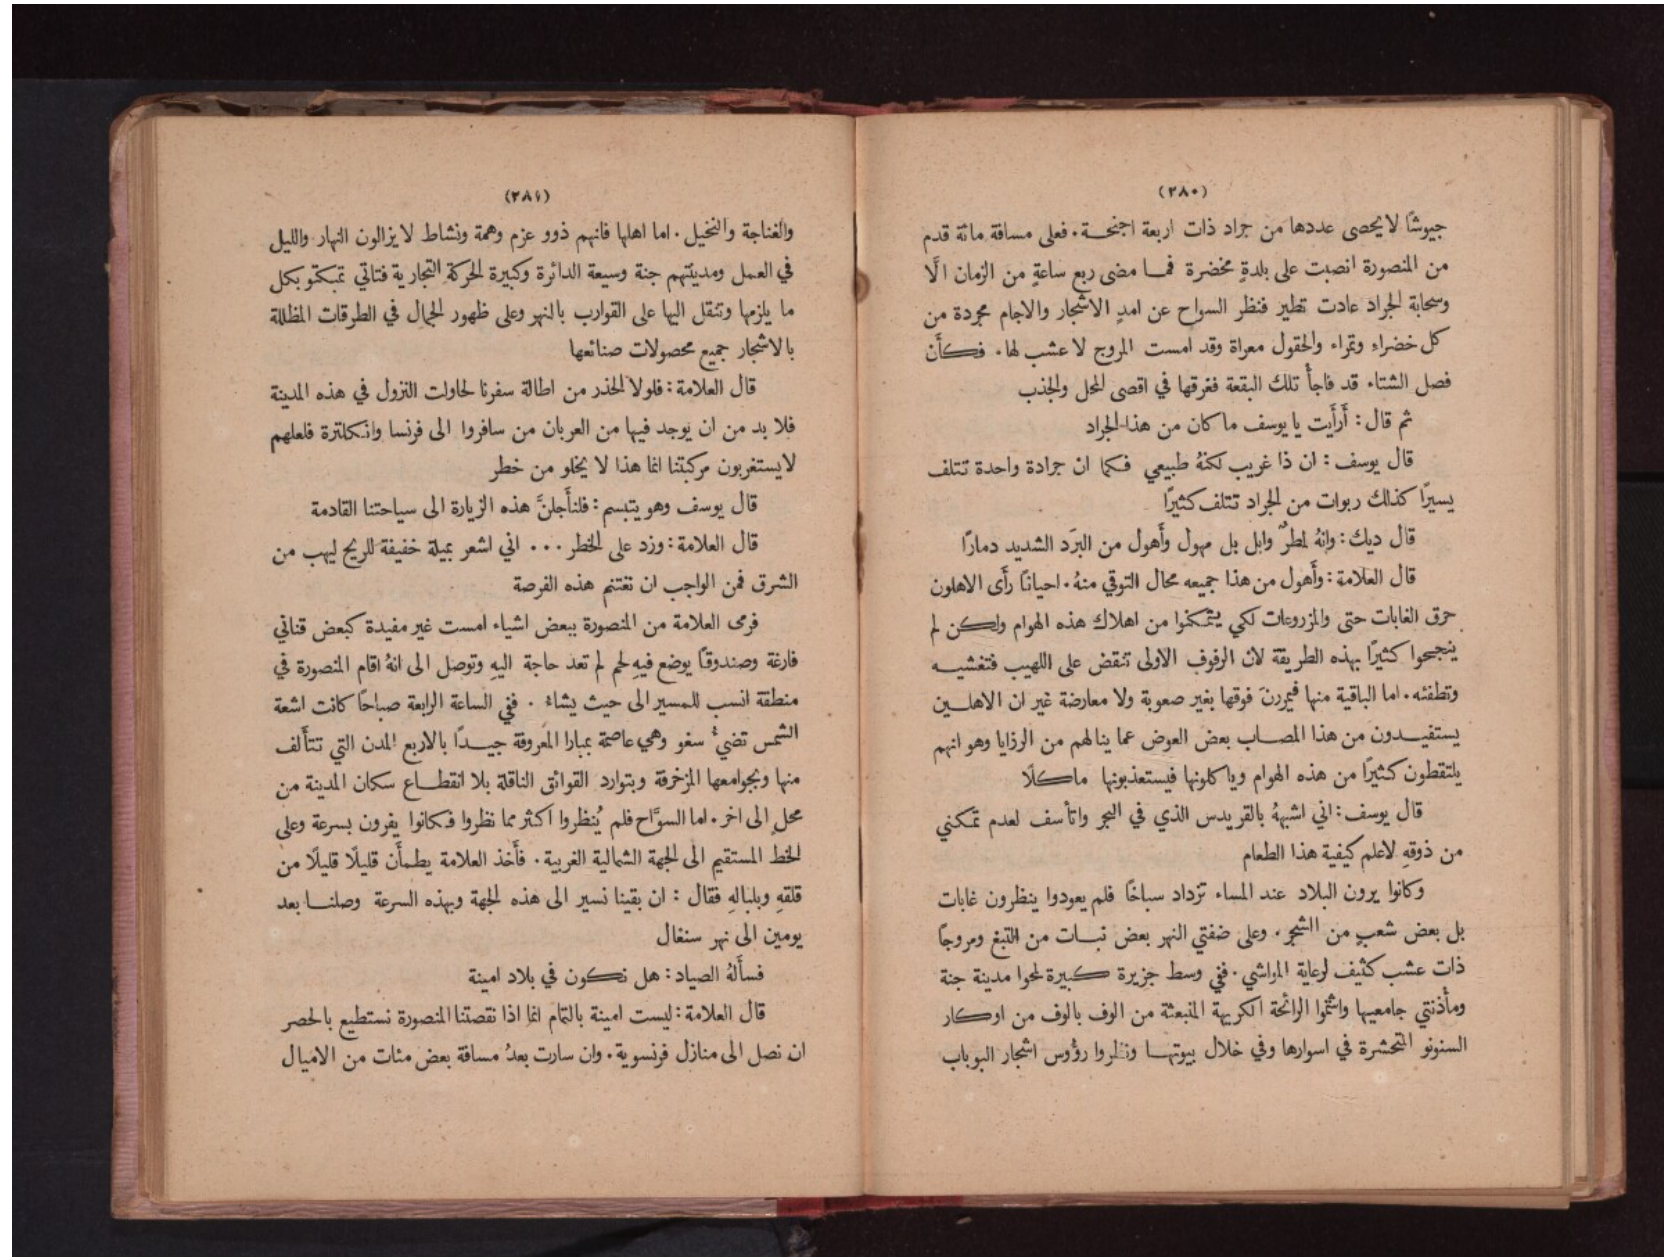 (٢٨٠)
جيوشًا لا يحصى عددها من جراد ذات اربعة اجنحـة. فعلى مسافة مائة قدم
من المنصورة انصبت على بلدةٍ مخضرة فمـا مضى ربع ساعةٍ من الزمان الَّا
وسحابة الجراد عادت تطير فنظر السواح عن امدٍ الاشجار والاجام مجردة من
كل خضراء وثمراء والحقول معراة وقد امست المروج لا عشب لها. فكأَن
فصل الشتاء قد فاجأَ تلك البقعة فغرقها في اقصى المحل والجذب
ثم قال: أَرأَيت يا يوسف ما كان من هذا الجراد
قال يوسف: ان ذا غريب لكنهُ طبيعي فكما ان جرادة واحدة تتلف
يسيرًا كذلك ربوات من الجراد تتلف كثيرًا
قال ديك: وانهُ لمطرٌ وابل بل مهول وأَهول من البرَد الشديد دمارًا
قال العلامة: وأَهول من هذا جميعه محال التوقي منهُ. احيانًا رأَى الاهلون
حرق الغابات حتى والمزروعات لكي يتمكنوا من اهلاك هذه الهوام ولكن لم
ينجحوا كثيرًا بهذه الطريقة لان الرفوف الاولى تنقض على اللهيب فتغشيـه
وتطفئه. اما الباقية منها فيمررنَ فوقها بغير صعوبة ولا معارضة غير ان الاهلـين
يستفيـدون من هذا المصـاب بعض العوض عما ينالهم من الرزايا وهو انهم
يلتقطون كثيرًا من هذه الهوام وياكلونها فيستعذبونها ماكلًا
قال يوسف: اني اشبههُ بالقريدس الذي في البحر واتأسف لعدم تمكني
من ذوقهِ لاعلم كيفية هذا الطعام
وكانوا يرون البلاد عند المساء تزداد سباخًا فلم يعودوا ينظرون غابات
بل بعض شعبٍ من الشجر. وعلى ضفتي النهر بعض نبـات من التبغ ومروجًا
ذات عشب كثيف لرعاية المواشي. ففي وسط جزيرة كبيرة لمحوا مدينة جنة
ومأذنتي جامعيها واشتموا الرائحة الكريهة المنبعثة من الوف بالوف من اوكار
السنونو المتحشرة في اسوارها وفي خلال بيوتهـا ونظروا رؤوس اشجار البوباب
(٢٨١)
والغناجة والنخيل. اما اهلها فانهم ذوو عزم وهمة ونشاط لا يزالون النهار والليل
في العمل ومدينتهم جنة وسيعة الدائرة وكبيرة الحركة التجارية فتاتي تمبكتو بكل
ما يلزمها وتنقل اليها على القوارب بالنهر وعلى ظهور الجمال في الطرقات المظللة
بالاشجار جميع محصولات صنائعها
قال العلامة: فلولا الحذر من اطالة سفرنا لحاولت النزول في هذه المدينة
فلا بد من ان يوجد فيها من العربان من سافروا الى فرنسا وانكلترة فلعلهم
لا يستغربون مركبتنا انما هذا لا يخلو من خطر
قال يوسف وهو يتبسم: فلنأَجلنَّ هذه الزيارة الى سياحتنا القادمة
قال العلامة: وزد على الخطر ... اني اشعر بميلة خفيفة للريح ليهب من
الشرق فمن الواجب ان نغتنم هذه الفرصة
فرمى العلامة من المنصورة ببعض اشياء امست غير مفيدة كبعض قناني
فارغة وصندوقًا يوضع فيهِ لحم لم تعد حاجة اليهِ وتوصل الى انهُ اقام المنصورة في
منطقة انسب للمسير الى حيث يشاء . ففي الساعة الرابعة صباحًا كانت اشعة
الشمس تضيءُ سغو وهي عاصمة بمبارا المعروفة جيـدًا بالاربع المدن التي تتأَلف
منها وبجوامعها المزخرفة وبتوارد القوائق الناقلة بلا انقطـاع سكان المدينة من
محلٍ الى اخر. اما السوَّاح فلم يُنظروا اكثر مما نظروا فكانوا يفرون بسرعة وعلى
الخط المستقيم الى الجهة الشمالية الغربية. فأَخذ العلامة يطمأَن قليلًا قليلًا من
قلقهِ وبلبالهِ فقال : ان بقينا نسير الى هذه الجهة وبهذه السرعة وصلنـا بعد
يومين الى نهر سنغال
فسأَلهُ الصياد: هل نكون في بلاد امينة
قال العلامة: ليست امينة بالتمام انما اذا نقصتنا المنصورة نستطيع بالحصر
ان نصل الى منازل فرنسوية. وان سارت بعدُ مسافة بعض مئات من الاميال